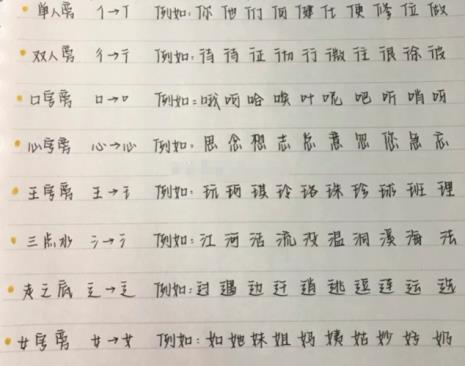 单人旁 亻→亻 例如: 你 他 们 何 健 仕 便 修 位 做
双人旁 彳→彳 例如: 待 待 征 彻 行 微 往 很 徐 彼
口字旁 口→口 例如: 哦 啊 哈 唉 叶 呢 吧 听 哨 呀
心字旁 心→心 例如: 思 念 想 志 总 意 忽 您 急 忘
王字旁 王→王 例如: 玩 珂 琪 玲 珞 珠 珍 球 班 理
三点水 氵→氵 例如: 江 河 活 流 没 温 洞 溪 海 法
走之底 辶→辶 例如: 过 遇 边 迁 逍 逃 逗 连 运 选
女字旁 女→女 例如: 如 她 妹 姐 妈 姨 姑 妙 妨 奶